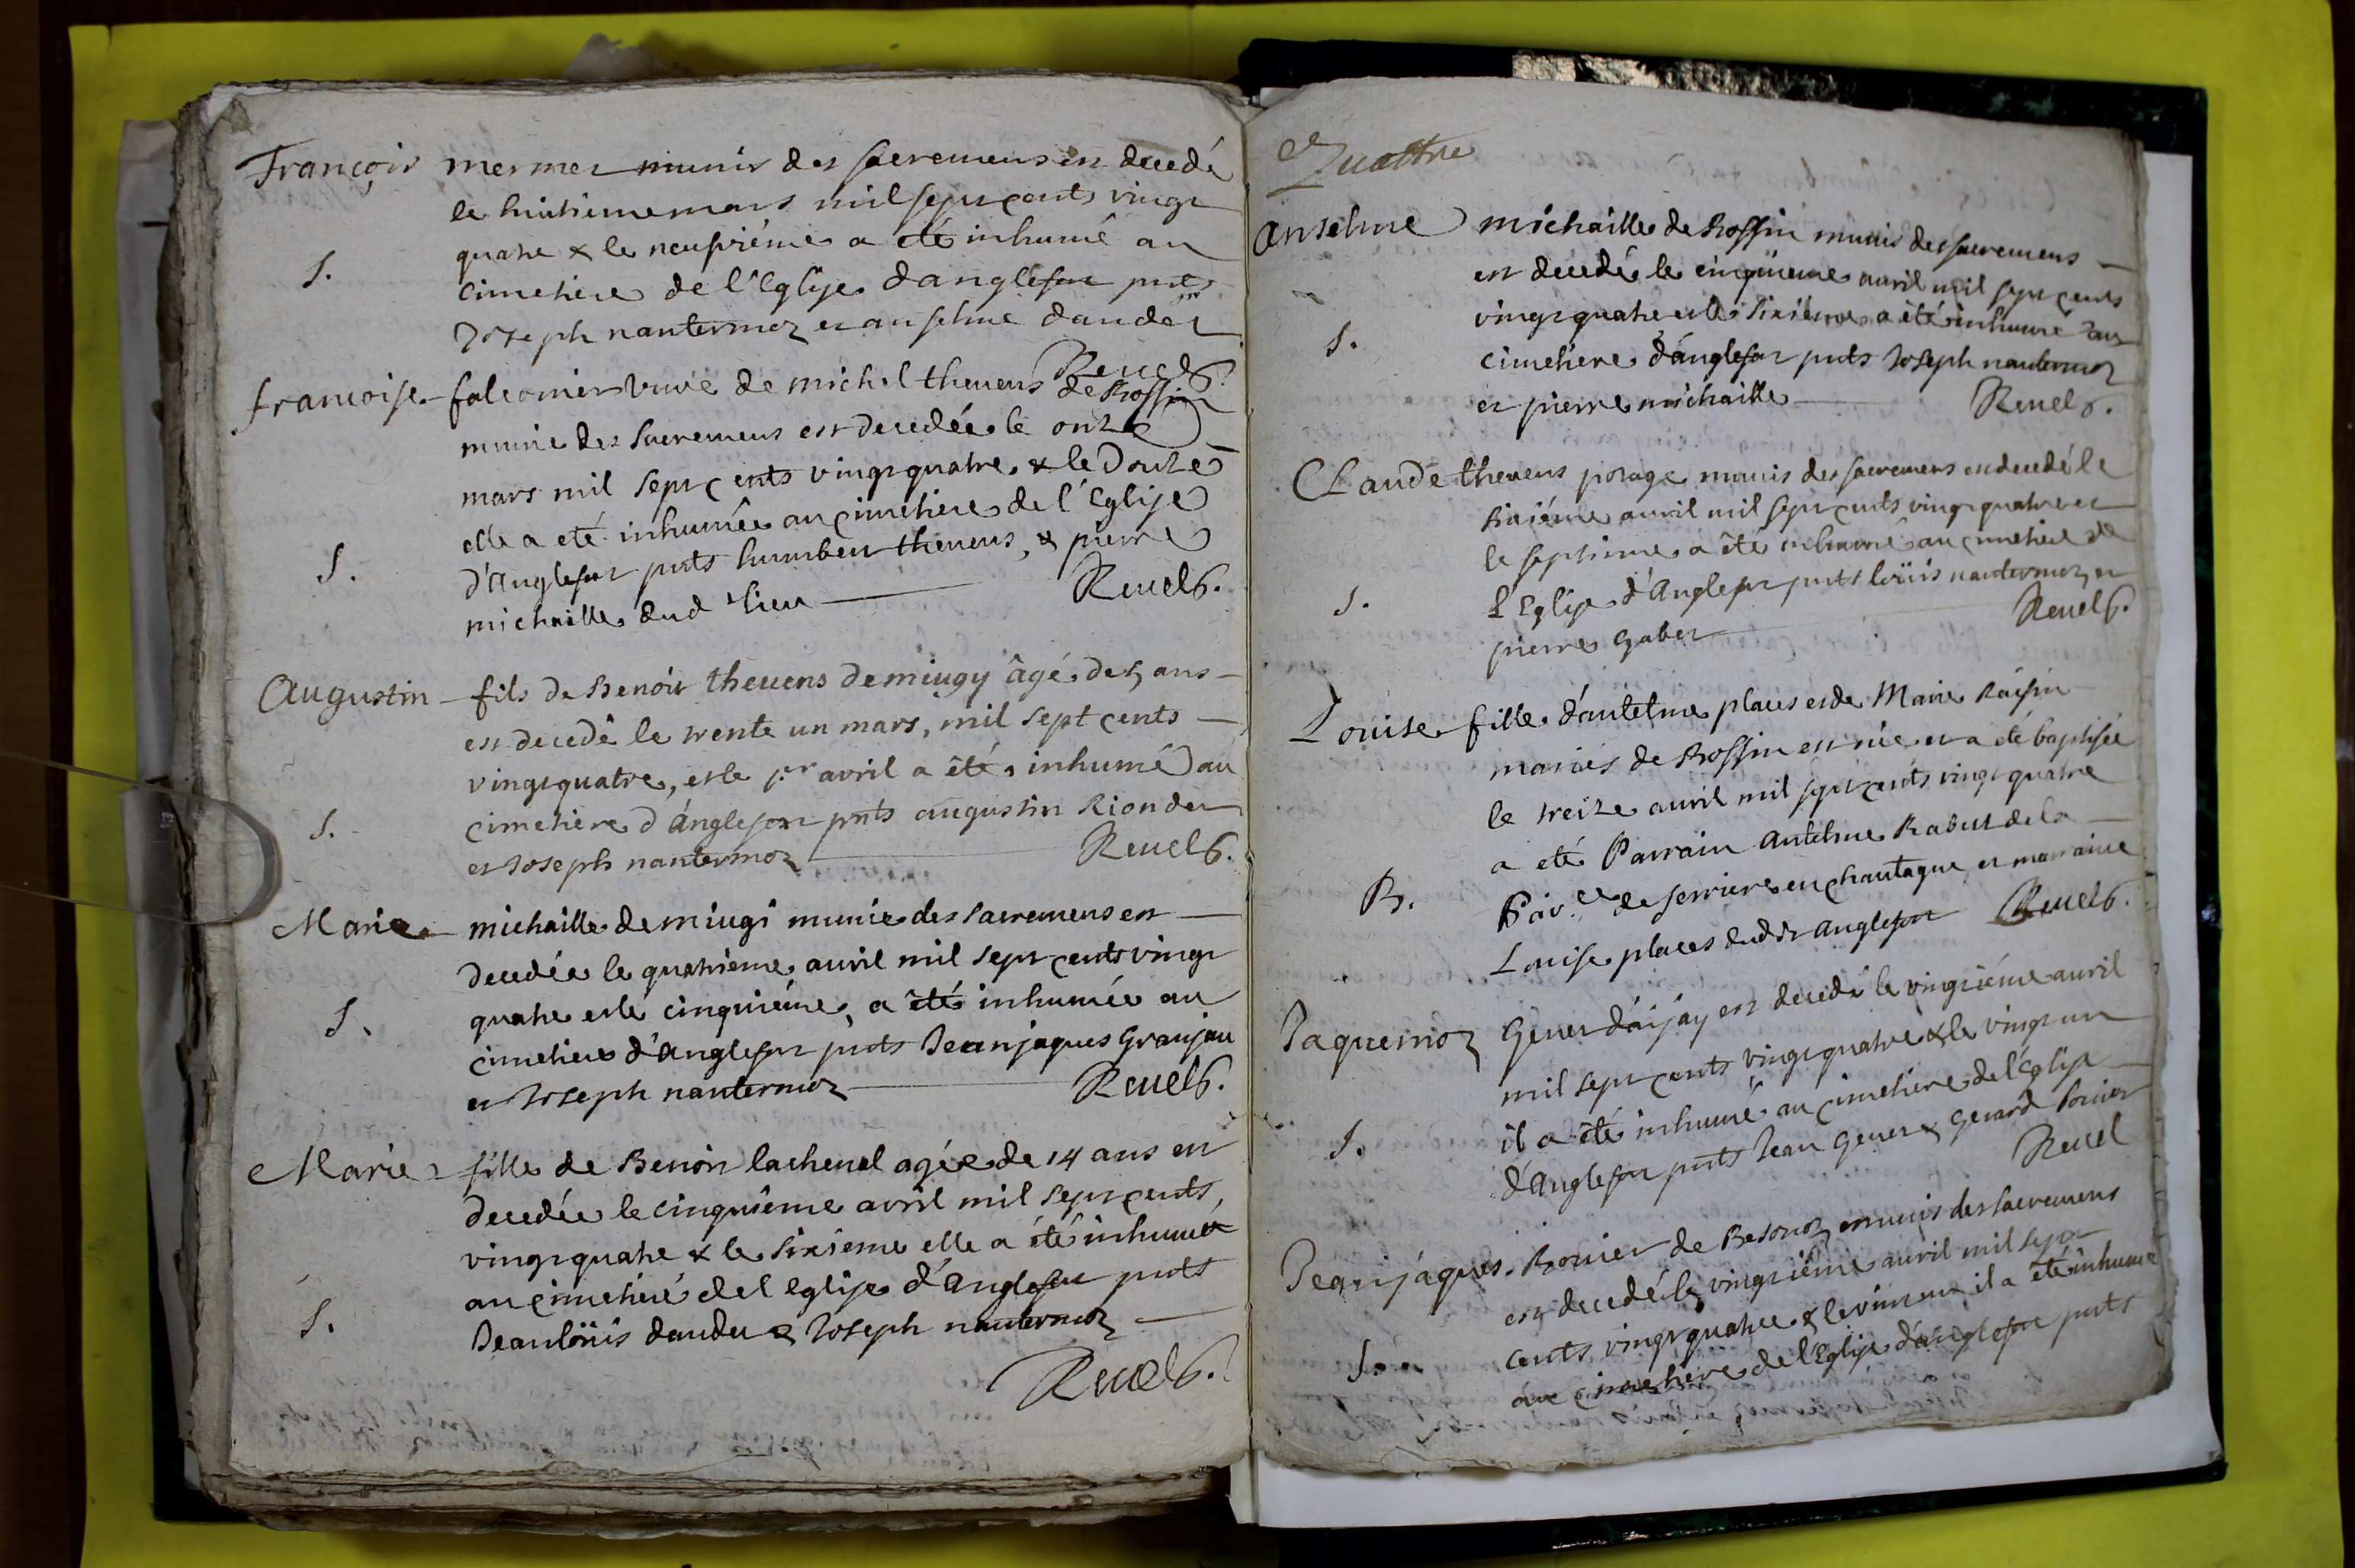 François mermet munir des sacremens est decedé
le huitieme mars mil sept cents vingt
quatre & le neufviéme a eté inhumé au
S. cimetiere de l'Eglise d'anglefort pnts
Joseph nantermoz et anselme daudet
Revel C.
francoise falconier vuve de michel thevens de Rossin
munie des sacremens est decedée le onze
mars mil sept cents vingt quatre & le douze
elle a eté inhumée au cimetiere de l'Eglise
S. d'Anglefort pnts humbert thevens, & pierre
michaille dud lieu Revel C.
Augustin fils de Benoit thevens de miugy âgé de 5 ans
est decedé le trente un mars, mil sept cents
vingt quatre, et le pr avril a été inhumé au
S. cimetiere d'Anglefort pnts augustin Riondet
et Joseph nantermoz Revel C.
Marie michaille de miugi munie des sacremens est
decedée le quatrieme avril mil sept cents vingt
S. quatre et le cinquiéme, a été inhumée au
cimetiere d'Anglefort pnts Jeanjaques Granjan
et Joseph nantermoz Revel C.
Marie fille de Benoit lachenal agée de 14 ans est
decedée le cinquiême avril mil sept cents,
vingt quatre & le sixieme elle a été inhumée
au cimetiere de l eglise d'Anglefort pnts
S. Jeanloüis daudet & Joseph nantermoz
Revel C.
Quattre
Anselme michaille de Rossin munis des sacremens
est decedé le cinquieme avril mil sept cents
vingt quatre et le sixiéme a été inhumé au
S. cimetiere d'anglefort pnts Joseph nantermoz
et pierre michaille Revel C.
CLaude thevens potage munis des sacremens est decedé le
sixiéme avril mil sept cents vingt quatre et
le septieme a été inhumé au cimetiere de
S. l'Eglise d'Anglefort pnts loüis nantermoz et
pierre Gabet Revel C.
Louise fille d'antelme places et de Marie Raisin
mariés de Rossin est née et a été baptisée
le treize avril mil sept cents vingt quatre
a eté Parrain Antelme Rabut de la
B. Par.se de serriere en chautagne et marraine
Louise places dud.t Anglefort Revel C.
Jaquemoz Genet d'aijay est decedé le vingtiéme avril
mil sept cents vingt quatre & le vingt un
S. il a été inhumé au cimetiere de l'Eglise
d'Anglefort pnts Jean Genet & Gerard
Revel
Jeanjaques Bonier de Besonoz munis des sacremens
est decedé le vingtiéme avril mil sept
S. cents vingt quatre & le vint un il a été inhumé
au cimetiere de l'Eglise d'anglefort pnts